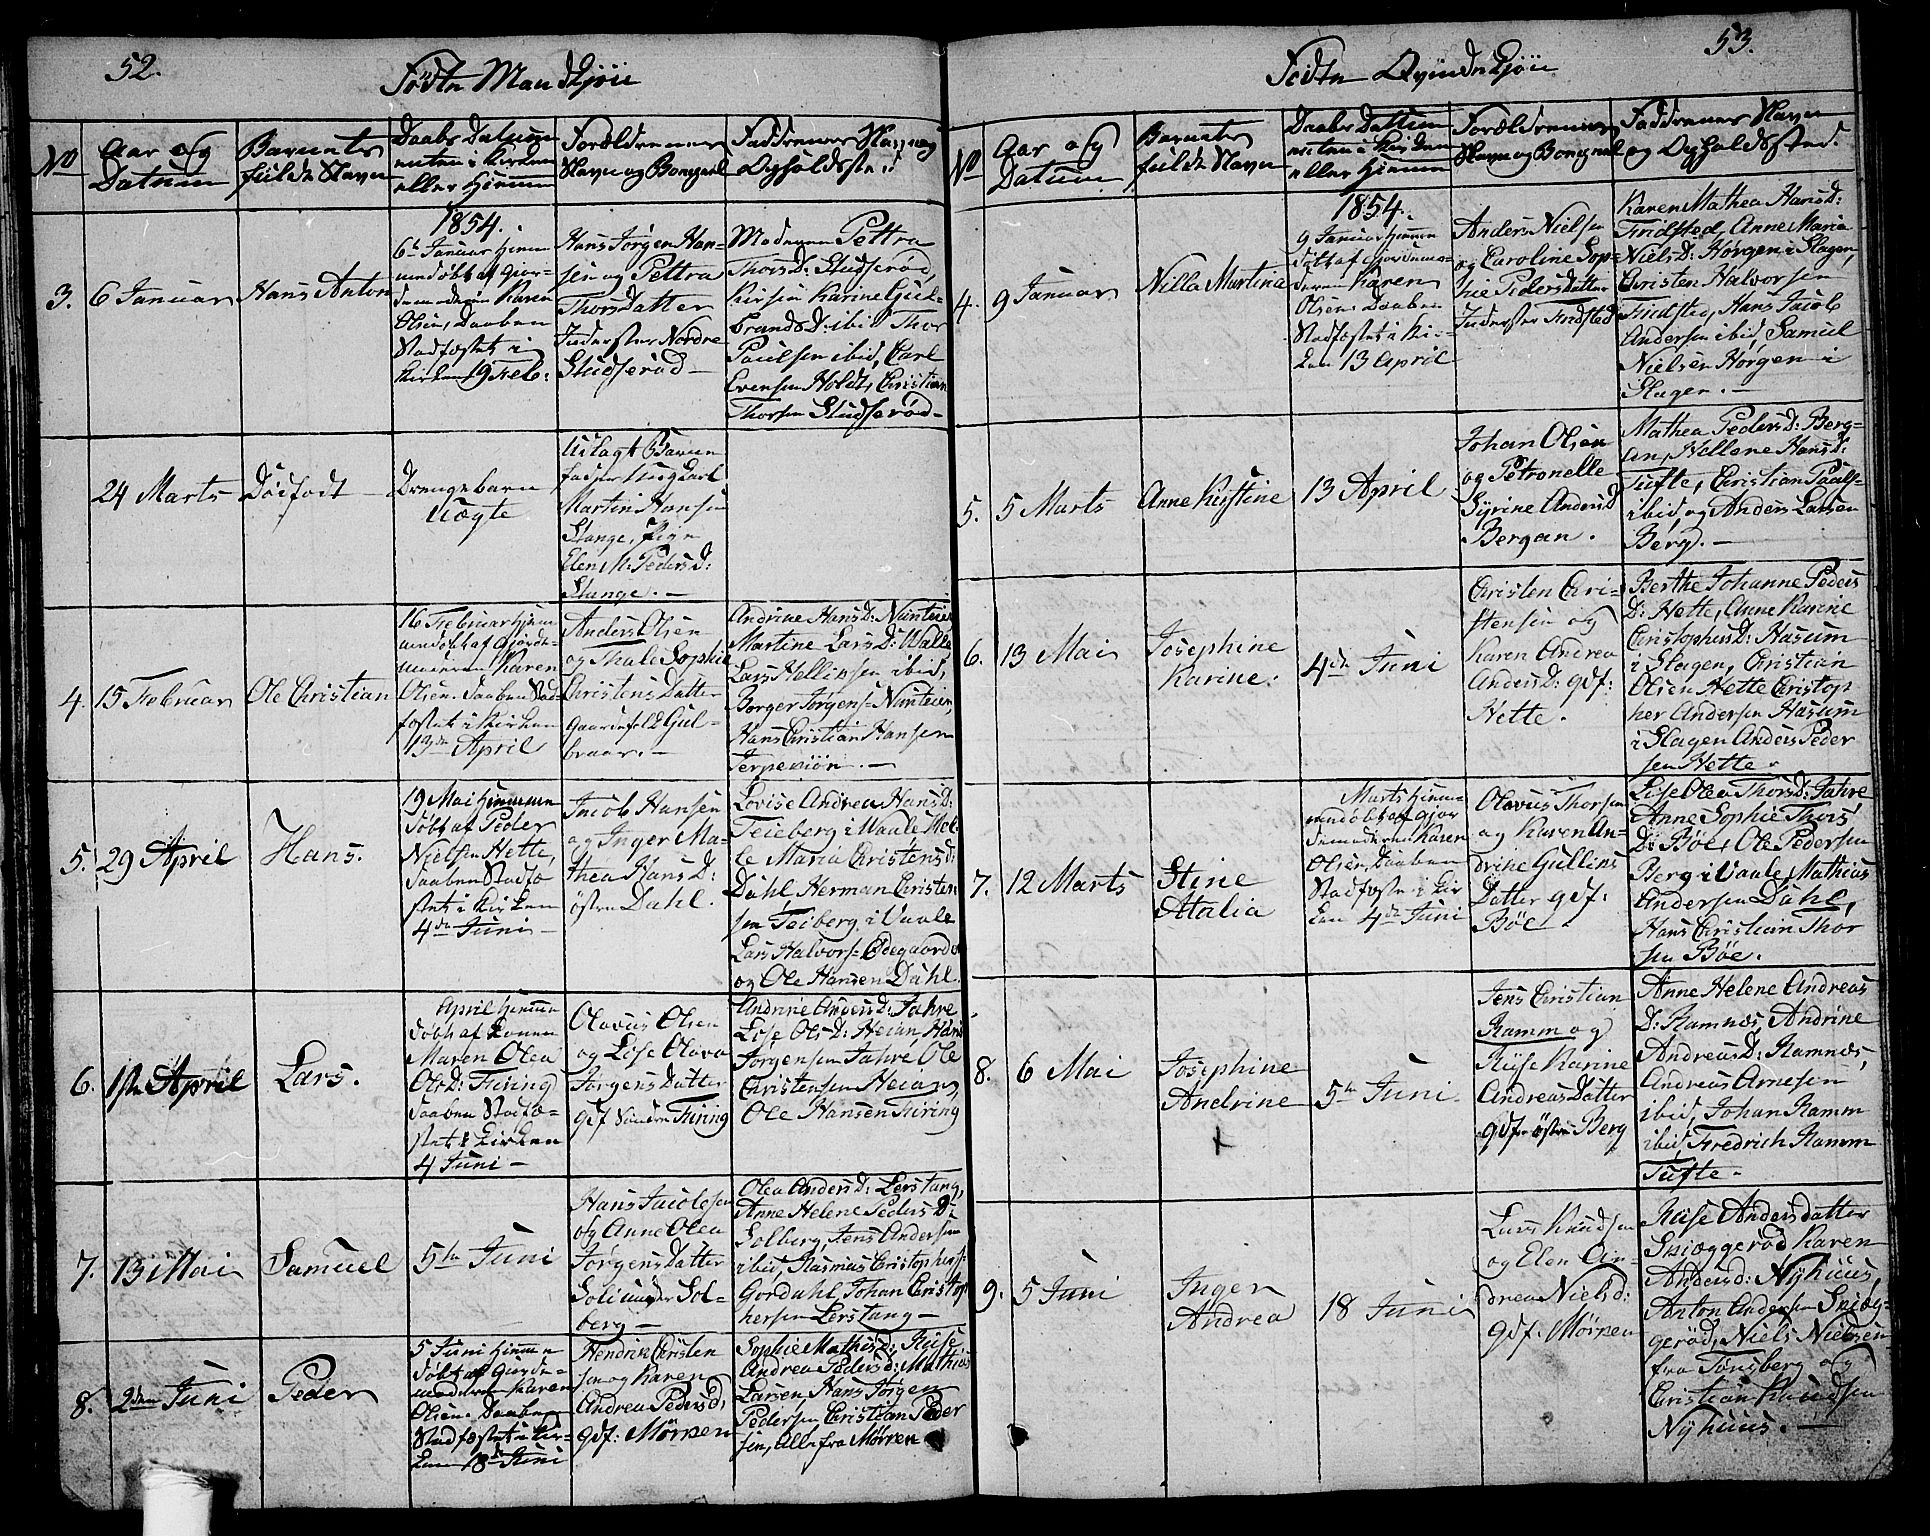 52.
Fødte Mandkjøn
No
Aar og
Datum
Barnets
fulde Navn
Daabs Datum
enten i Kirken
eller Hjemme
Forældrenes
Navn og Bopæl
Faddrenes Navn og
Opholdsste
3.
6 Januar
Hans Anton
1854.
6te Januar hjem
medøbt af Gjor
demoderen Karen
Olsen, Daaben
Stadfæstet i
Kirken 19 Feb:
Hans Jørgen Han-
sen og Pettra
Thorsdatter
Inderster Nordre
Studserød
Madame Pettra
Thorsd: Studserød,
Kirsten Karine Gul-
brandsd: ibid Thor
Paulsen ibid, Carl
Evensen Holdt, Christian
Thorsen Studserød
24 Marts
Dødfødt
Drengebarn
Uægte
Udlagt Barne
fader Ung Carl
Martin Hansen
Stange, Pige
Elen M. Pedersd:
Stange.
4.
15 Februar
Ole Christian
16 Februar hjem
medøbt af Gjorde
moderen Karen
Olsen. Daaben Stad
fæstet i Kirken
13de April
Anders Olsen
og Thale Sophie
Christens Datter
Gaardfolk Gul-
braar.
Andrine Hansd: Nuntien
Martine Larsd: Walle
Lars Hellingsen ibid,
Borger Jørgens: Nuntien,
Hans Christian Hansen
Jerpekiøn.
5.
29 April
Hans.
19 Mai hjemme
døbt af Peder
Nielsen Hette,
Daaben Stadfæ
stet i Kirken
4de Juni
Jacob Hansen
og Inger Ma-
thea Hans D:
østre Dahl.
Lovise Andrea Hansd:
Teieberg i Vaale Hel-
le Maria Christensd:
Dahl, Herman Christen
sen Teiberg i Vaale
Lars Halvors: Ødegaarden
og Ole Hansen Dahl.
6.
1ste April
Lars.
April hjemme
døbt af Konen
Maren Olea
Olsd: Firing
Daaben Stadfæ-
stet i Kirken
4 Juni
Olavus Olsen
og Lise Olava
Jørgens Datter
gdf Søndre Firing
Andrine Andersd: Jahre
Lise Olsd: Heian, Hans
Jørgensen Jahre, Ole
Christensen Heian,
Ole Hansen Firing
7.
13 Mai
Samuel
5te Juni
Hans Jacobsen
og Anne Olea
Jørgens Datter
Solberg
Olea Andersd: Lerstang,
Anne Helene Peders D:
Solberg, Jens Andersen
ibid, Rasmus Christophers:
Gordahl, Johan Christop
hersen Lerstang
8.
2den Juni
Peder
5 Juni hjemme
døbt af Gjorde-
moderen Karen
Olsen. Daaben
Stadfæstet i Kir-
ken 18de Juni
Hendrik Christen
sen og Karen
Andrea Pedersd,
gdf: Mørken
Sophie Mathisd: Ruse
Andrea Pedersd: Mathias
Larsen, Hans Jørgen
Pedersen Christian Peder
sen, Alle fra Mørken
53.
Fødte Qvindekjøn
No
Aar og
Datum
Barnets
fulde Navn
Daabs Datum
enten i Kirken
eller Hjemme
Forældrenes
Navn og Bopæl
Faddrenes Navn
og Opholdssted.
4.
9 Januar
Nilla Martina
1854.
9 Januar hjemme
døbt af Gjordemo
deren Karen
Olsen. Daaben
Stadfæstet i Kir-
ken 13 April
Anders Nielsen
og Caroline Sop-
hie Pedersdatter
Inderster Findsted
Karen Mathea Hansd:
Findsted, Anne Maria
Nielsd: Horgen i Slagen,
Christen Halvorsen
Findsted, Hans Jacob
Andersen ibid, Samuel
Nielsen Horgen i
Slagen.
5.
5 Marts
Anne Kirstine
13 April
Johan Olsen
og Petronelle
Syrine Andersd
Bergan.
Mathea Pedersd: Berg-
an, Hellene Hansd:
Tufte, Christian Pauls-
ibid og Anders Larsen
Berg.
6.
13 Mai
Josephine
Karine.
4de Juni
Christen Chri-
stensen og
Karen Andrea
Andersd: gdf:
Hette.
Berthe Johanne Peders
D: Hette, Anne Karine
Christophersd: Hasum
i Slagen, Christian
Olsen Hette Christop
her Andersen Hasum
i Slagen Anders Peder
sen Hette.
7.
12 Marts
Stine
Atalia
Marts hjem-
medøbt af Gjor
demoderen Karen
Olsen, Daaben
Stadfæstet i Kir
ken 4de Juni
Olavus Thorsen
og Karen An-
drine Gullins
Datter gdf:
Bøe
Lise Olea Thorsd: Jahre
Anne Sophie Thors
D: Bøe, Ole Pedersen
Berg i Vaale, Mathias
Andersen Dahl,
Hans Christian Thor
sen Bøe.
8.
6 Mai
Josephine
Andrine
+
5te Juni.
Jens Christian
Ramm og
Riise Karine
Andreas Datter
gdf. østre Berg
Anne Helene Andreas
D: Ramnæs, Andrine
Andreasd: Ramnæs,
Andreas Arnesen
ibid, Johan Ramm
ibid, Fredrich Ramm
Tufte.
9.
5 Juni
Inger
Andrea
18 Juni
Lars Knudsen
og Elen An-
drea Nielsd:
gdf. Mørken
Riise Andersdatter
Skiøggerød Karen
Andersd: Nyhuus,
Anton Andersen Skiøg-
gerød, Niels Nielsen
fra Tønsberg og
Christian Knudsen
Nyhuus.